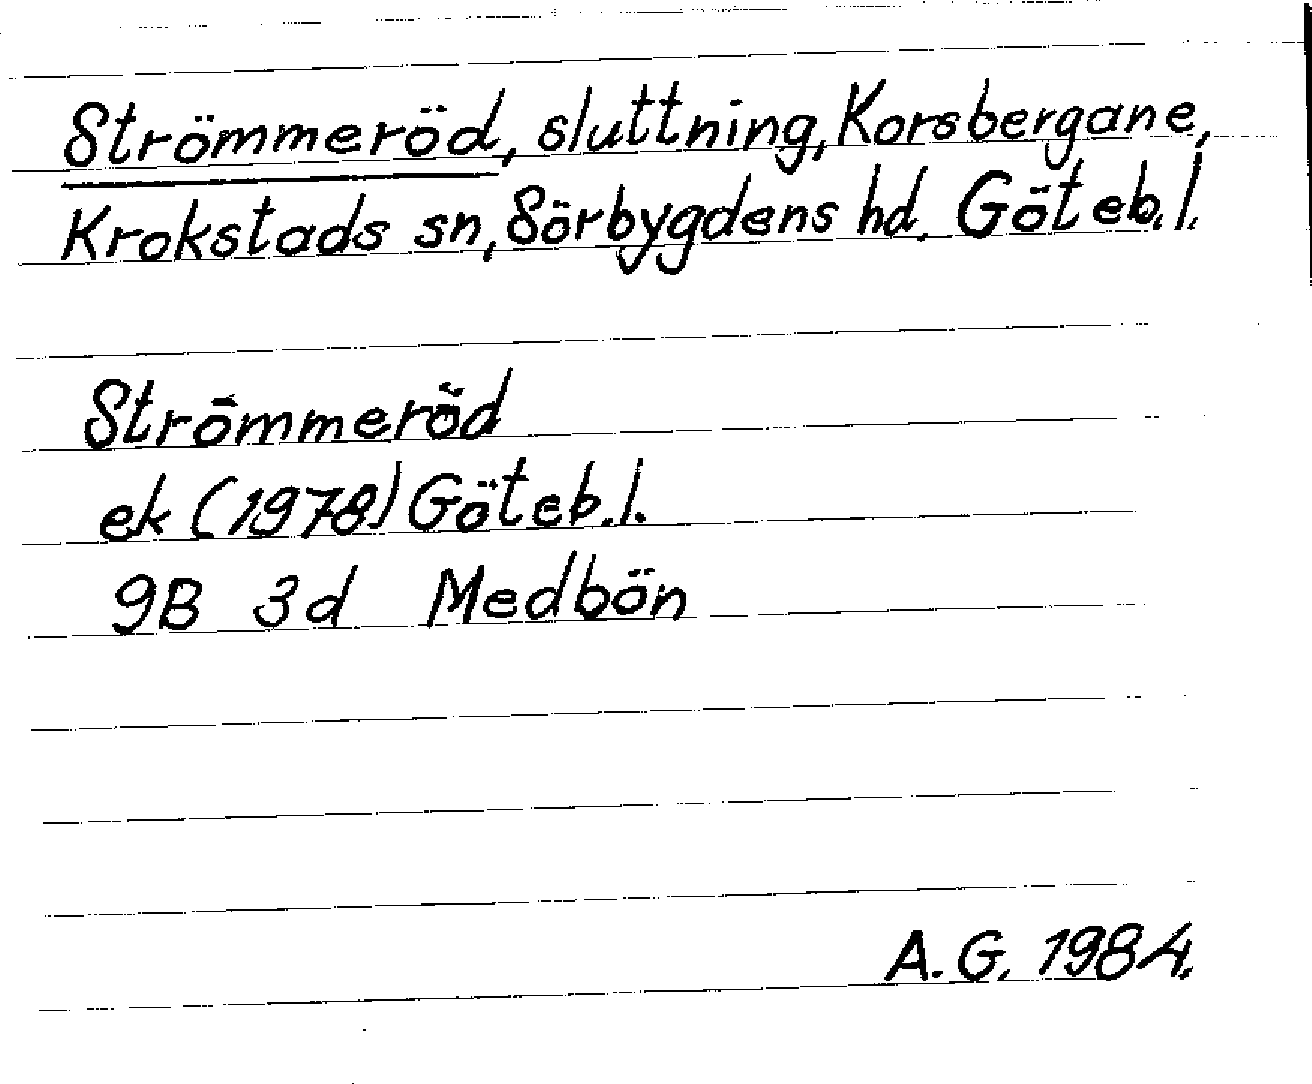 Strömmeröd, sluttning, Korsbergane,
Krokstads sn, Sörbygdens hd. Göteb. l.
Strömmeröd
ek (1978) Göteb. l.
9B 3d Medbön
A. G. 1984.